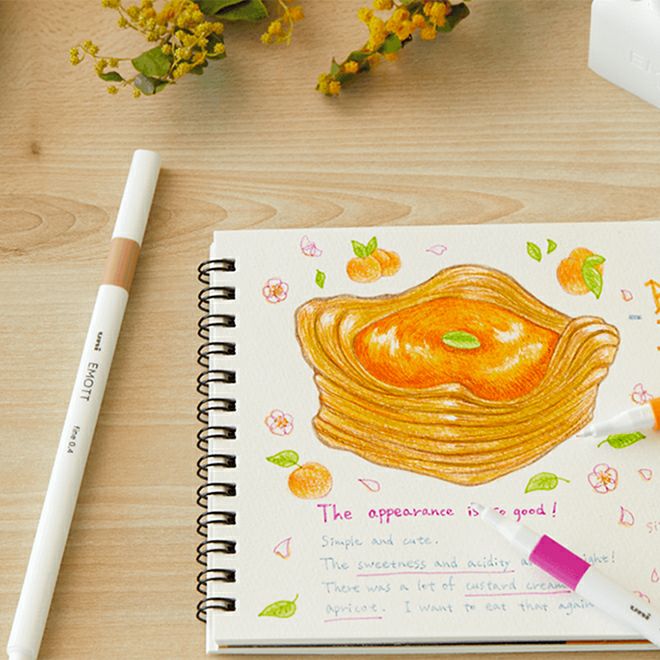 uni
EMOTT
fine 0.4
The appearance is so good!
Simple and cute.
The sweetness and acidity
There was a lot of custard cream
apricot. I want to eat that again
uni